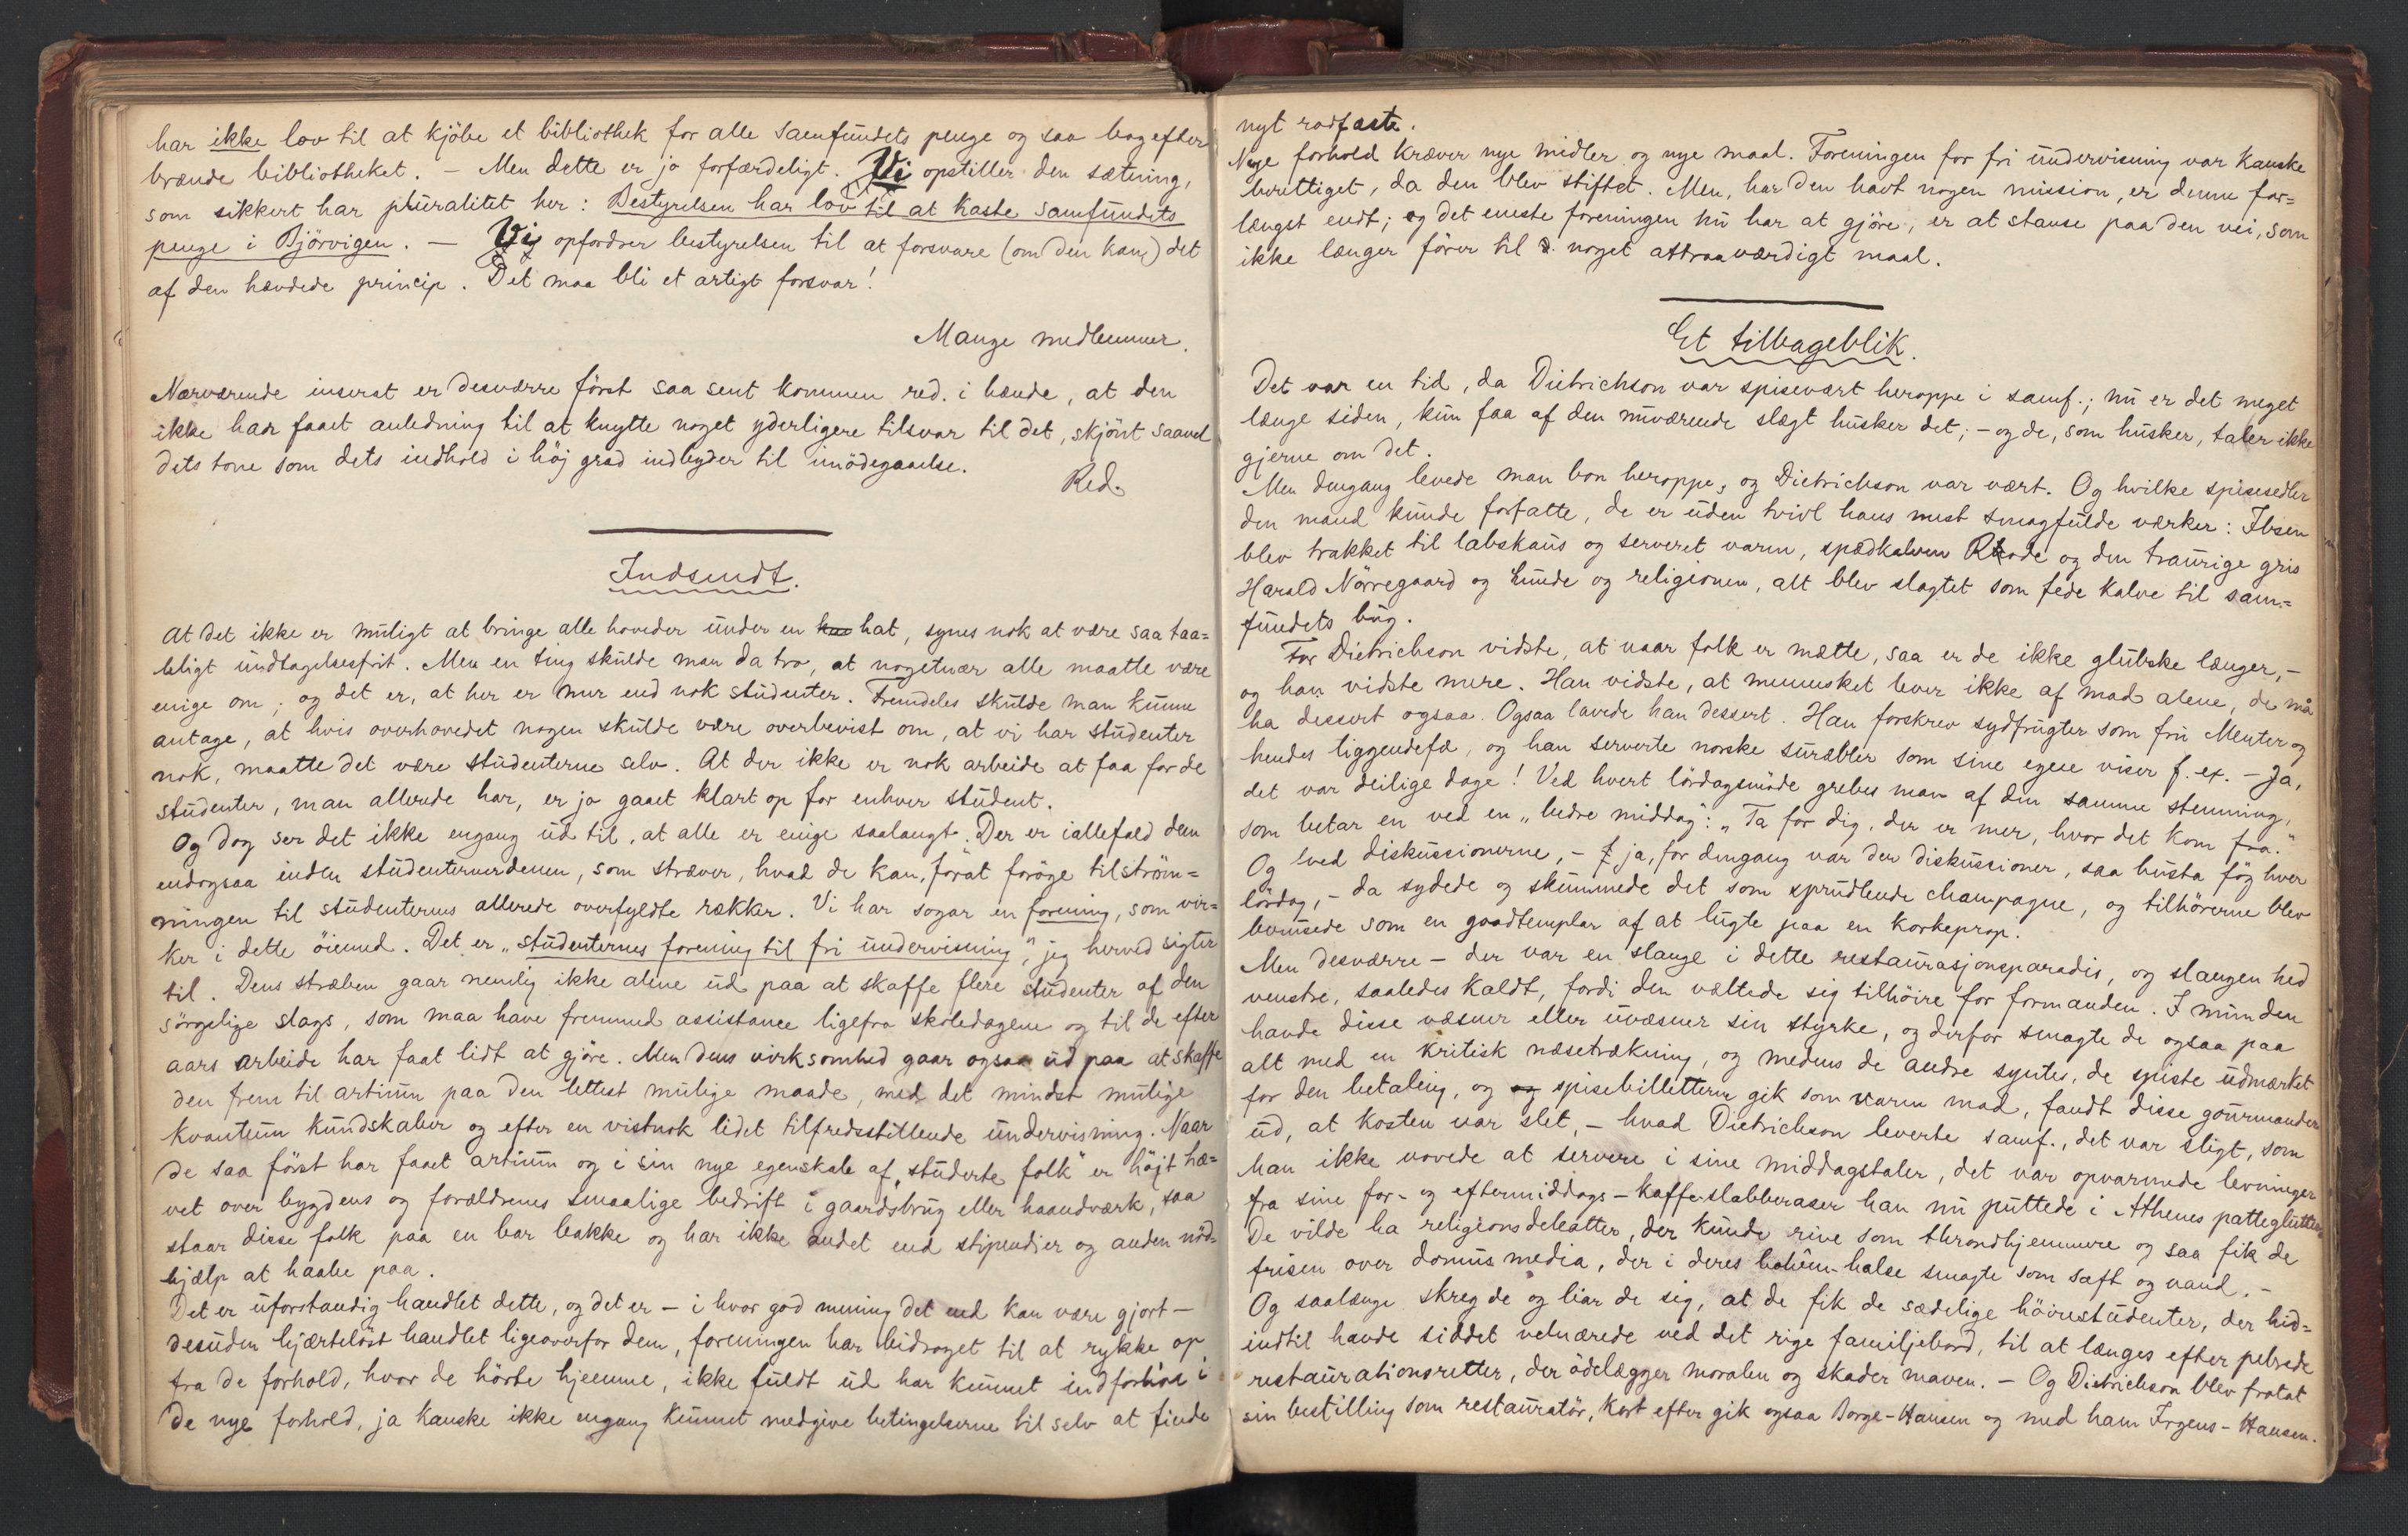 har ikke lov til at kjöbe et bibliothek for alle samfundets penge og saa bagefter
brænde bibliotheket. – Men dette er jo forfærdeligt. Vi opstiller den sætning,
som sikkert har pluralitet her: Bestyrelsen har lov til at kaste samfundets
penge i Bjørvigen. — Vi opfordrer bestyrelsen til at forsvare (om den kan) det
af den hævdede princip. Det maa bli et artigt forsvar!
Mange medlemmer.
Nærværende inserat er desværre först saa sent kommen red. i hænde, at den
ikke har faaet anledning til at knytte noget yderligere tilsvar til det, skjönt saavel
dets tone som dets indhold i höj grad indbyder til imödegaaelse.
Red.
Indsendt.
At det ikke er muligt at bringe alle hoveder under en hat, synes nok at være saa taa=
beligt undtagelsesfrit. Men en ting skulde man da tro, at nogetnær alle maatte være
enige om; og det er, at her er mer end nok studenter. Fremdeles skulde man kunne
antage, at hvis overhovedet nogen skulde være overbevist om, at vi har studenter
nok, maatte det være studenterne selv. At der ikke er nok arbeide at faa for de
studenter, man allerede har, er jo gaaet klart op for enhver student.
Og dog ser det ikke engang ud til, at alle er enige saalangt. Der er iallefald dem
endogsaa inden studenterverdenen, som stræver, hvad de kan, forat foröge tilström=
ningen til studenternes allerede overfyldte rækker. Vi har sogar en forening, som vir=
ker i dette öiemed. Det er „studenternes forening til fri undervisning”, jeg herved sigter
til. Dens stræben gaar nemlig ikke alene ud paa at skaffe flere studenter af den
sörgelige slags, som maa have fremmed assistance ligefra skoledagene og til de efter
aars arbeide har faat lidt at gjöre. Men dens virksomhed gaar ogsaa ud paa at skaffe
den frem til artium paa den lettest mulige maade, med det mindst mulige
kvantum kundskaber og efter en vistnok lidet tilfredsstillende undervisning. Naar
de saa först har faaet artium og i sin nye egenskab af „studerte folk” er höjt hæ=
vet over bygdens og forældrenes smaalige bedrift i gaardsbrug eller haandværk, saa
staar disse folk paa en bar bakke og har ikke andet end stipendier og anden nöd=
hjælp at haabe paa.
Det er uforstandig handlet dette, og det er – i hvor god mening det end kan være gjort –
desuden hjærtelöst handlet ligeoverfor dem, foreningen har bidraget til at rykke op
fra de forhold, hvor de hörte hjemme, ikke fuldt ud har kunnet indforlive i
de nye forhold, ja kanske ikke engang kunnet medgive betingelserne til selv at finde
nyt rodfæste.
Nye forhold kræver nye midler og nye maal. Foreningen for fri undervisning var kanske
berettiget, da den blev stiftet. Men, har den havt nogen mission, er denne for=
længst endt; og det eneste foreningen nu har at gjöre, er at stanse paa den vei, som
ikke længer förer til noget attraaværdigt maal.
Et tilbageblik.
Det var en tid, da Dietrichson var spisevært heroppe i samf.; nu er det meget
længe siden, kun faa af den nuværende slægt husker det; – og de, som husker, taler ikke
gjerne om det.
Men dengang levede man bon heroppe, og Dietrichson var vært. Og hvilke spisesedler
den mand kunde forfatte, de er uden tvivl hans mest smagfulde værker: Ibsen
blev trakket til labskaus og serveret varm, spædkalven Rode og den traurige gris
Harald Nörregaard og hunde og religionen, alt blev slagtet som fede kalve til sam=
fundets bug.
For Dietrichson vidste, at naar folk er mætte, saa er de ikke glubske længer, –
og han vidste mere. Han vidste, at mennesket lever ikke af mad alene, de må
ha dessert ogsaa. Ogsaa lavede han dessert. Han forskrev sydfrugter som fru Menter og
hendes liggendefæ, og han serverte norske suræbler som sine egene viser f. ex. – Ja,
det var deilige dage! Ved hvert lördagsmöde grebes man af den samme stemning,
som betar en ved en „bedre middag”: „Ta for dig, der er mer, hvor det kom fra.”
Og ved diskussionerne, – ja, for dengang var der diskussioner, saa busta fög hver
lördag, – da sydede og skummede det som sprudlende champagne, og tilhörerne blev
berusede som en goodtemplar af at lugte paa en korkeprop.
Men desværre – der var en slange i dette restaurasjonsparadis, og slangen hed
venstre, saaledes kaldt, fordi den væltede sig tilhöire for formanden. I munden
havde disse væsner eller uvæsner sin styrke, og derfor smagte de ogsaa paa
alt med en kritisk næsetrækning, og medens de andre syntes, de spiste udmærket
for den betaling, og spisebilletterne gik som varm mad, fandt disse gourmander
ud, at kosten var slet, – hvad Dietrichson leverte samf., det var sligt, som
han ikke vovede at servere i sine middagstaler, det var opvarmede levninger
fra sine for- og eftermiddags-kaffeslabberaser han nu puttede i Athenes patteglutter.
De vilde ha religionsdebatter, der kunde rive som throndhjemmere og saa fik de
frisen over domus media, der i deres bohêm-halse smagte som saft og vand. –
Og saalænge skreg de og liar de sig, at de fik de sædelige höirestudenter, der hid=
indtil havde siddet velnærede ved det rige familjebord, til at længes efter pebrede
restaurationsretter, der ödelægger moralen og skader maven. – Og Dietrichson blev fratat
sin bestilling som restauratör, kort efter gik ogsaa Borge-Hansen og med ham Irgens-Hansen.